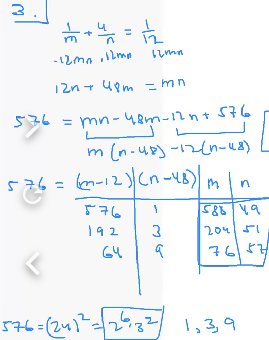 3.
1/m + 4/n = 1/12
·12mn ·12mn 12mn
12n + 48m = mn
576 = mn - 48m - 12n + 576
m (n-48) - 12(n-48)
576 = (m-12) (n-48) m n
576 1 588 49
192 3 204 51
64 9 76 57
576 = (24)² = 2⁶·3² 1, 3, 9